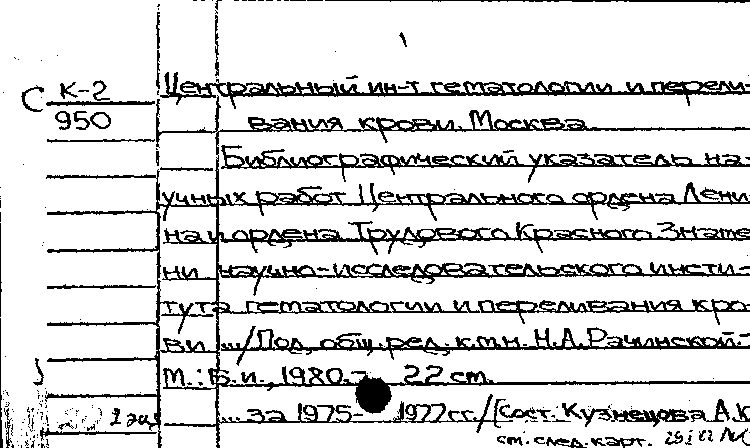 С К-2 Центральный ин-т гематологии и перели-
950 вания крови. Москва.
Библиографический указатель на-
учных работ Центрального ордена Лени-
на и ордена Трудового Красного Знаме
ни научно-исследовательского инсти-
тута гематологии и переливания кро-
ви .../Под общ. ред. к.м.н. Н.А. Рачинской.-
М.: Б.и., 1980.- 22 см.
1 экз ... за 1975- 1977 гг./[Сост. Кузнецова А.К
см. след. карт.